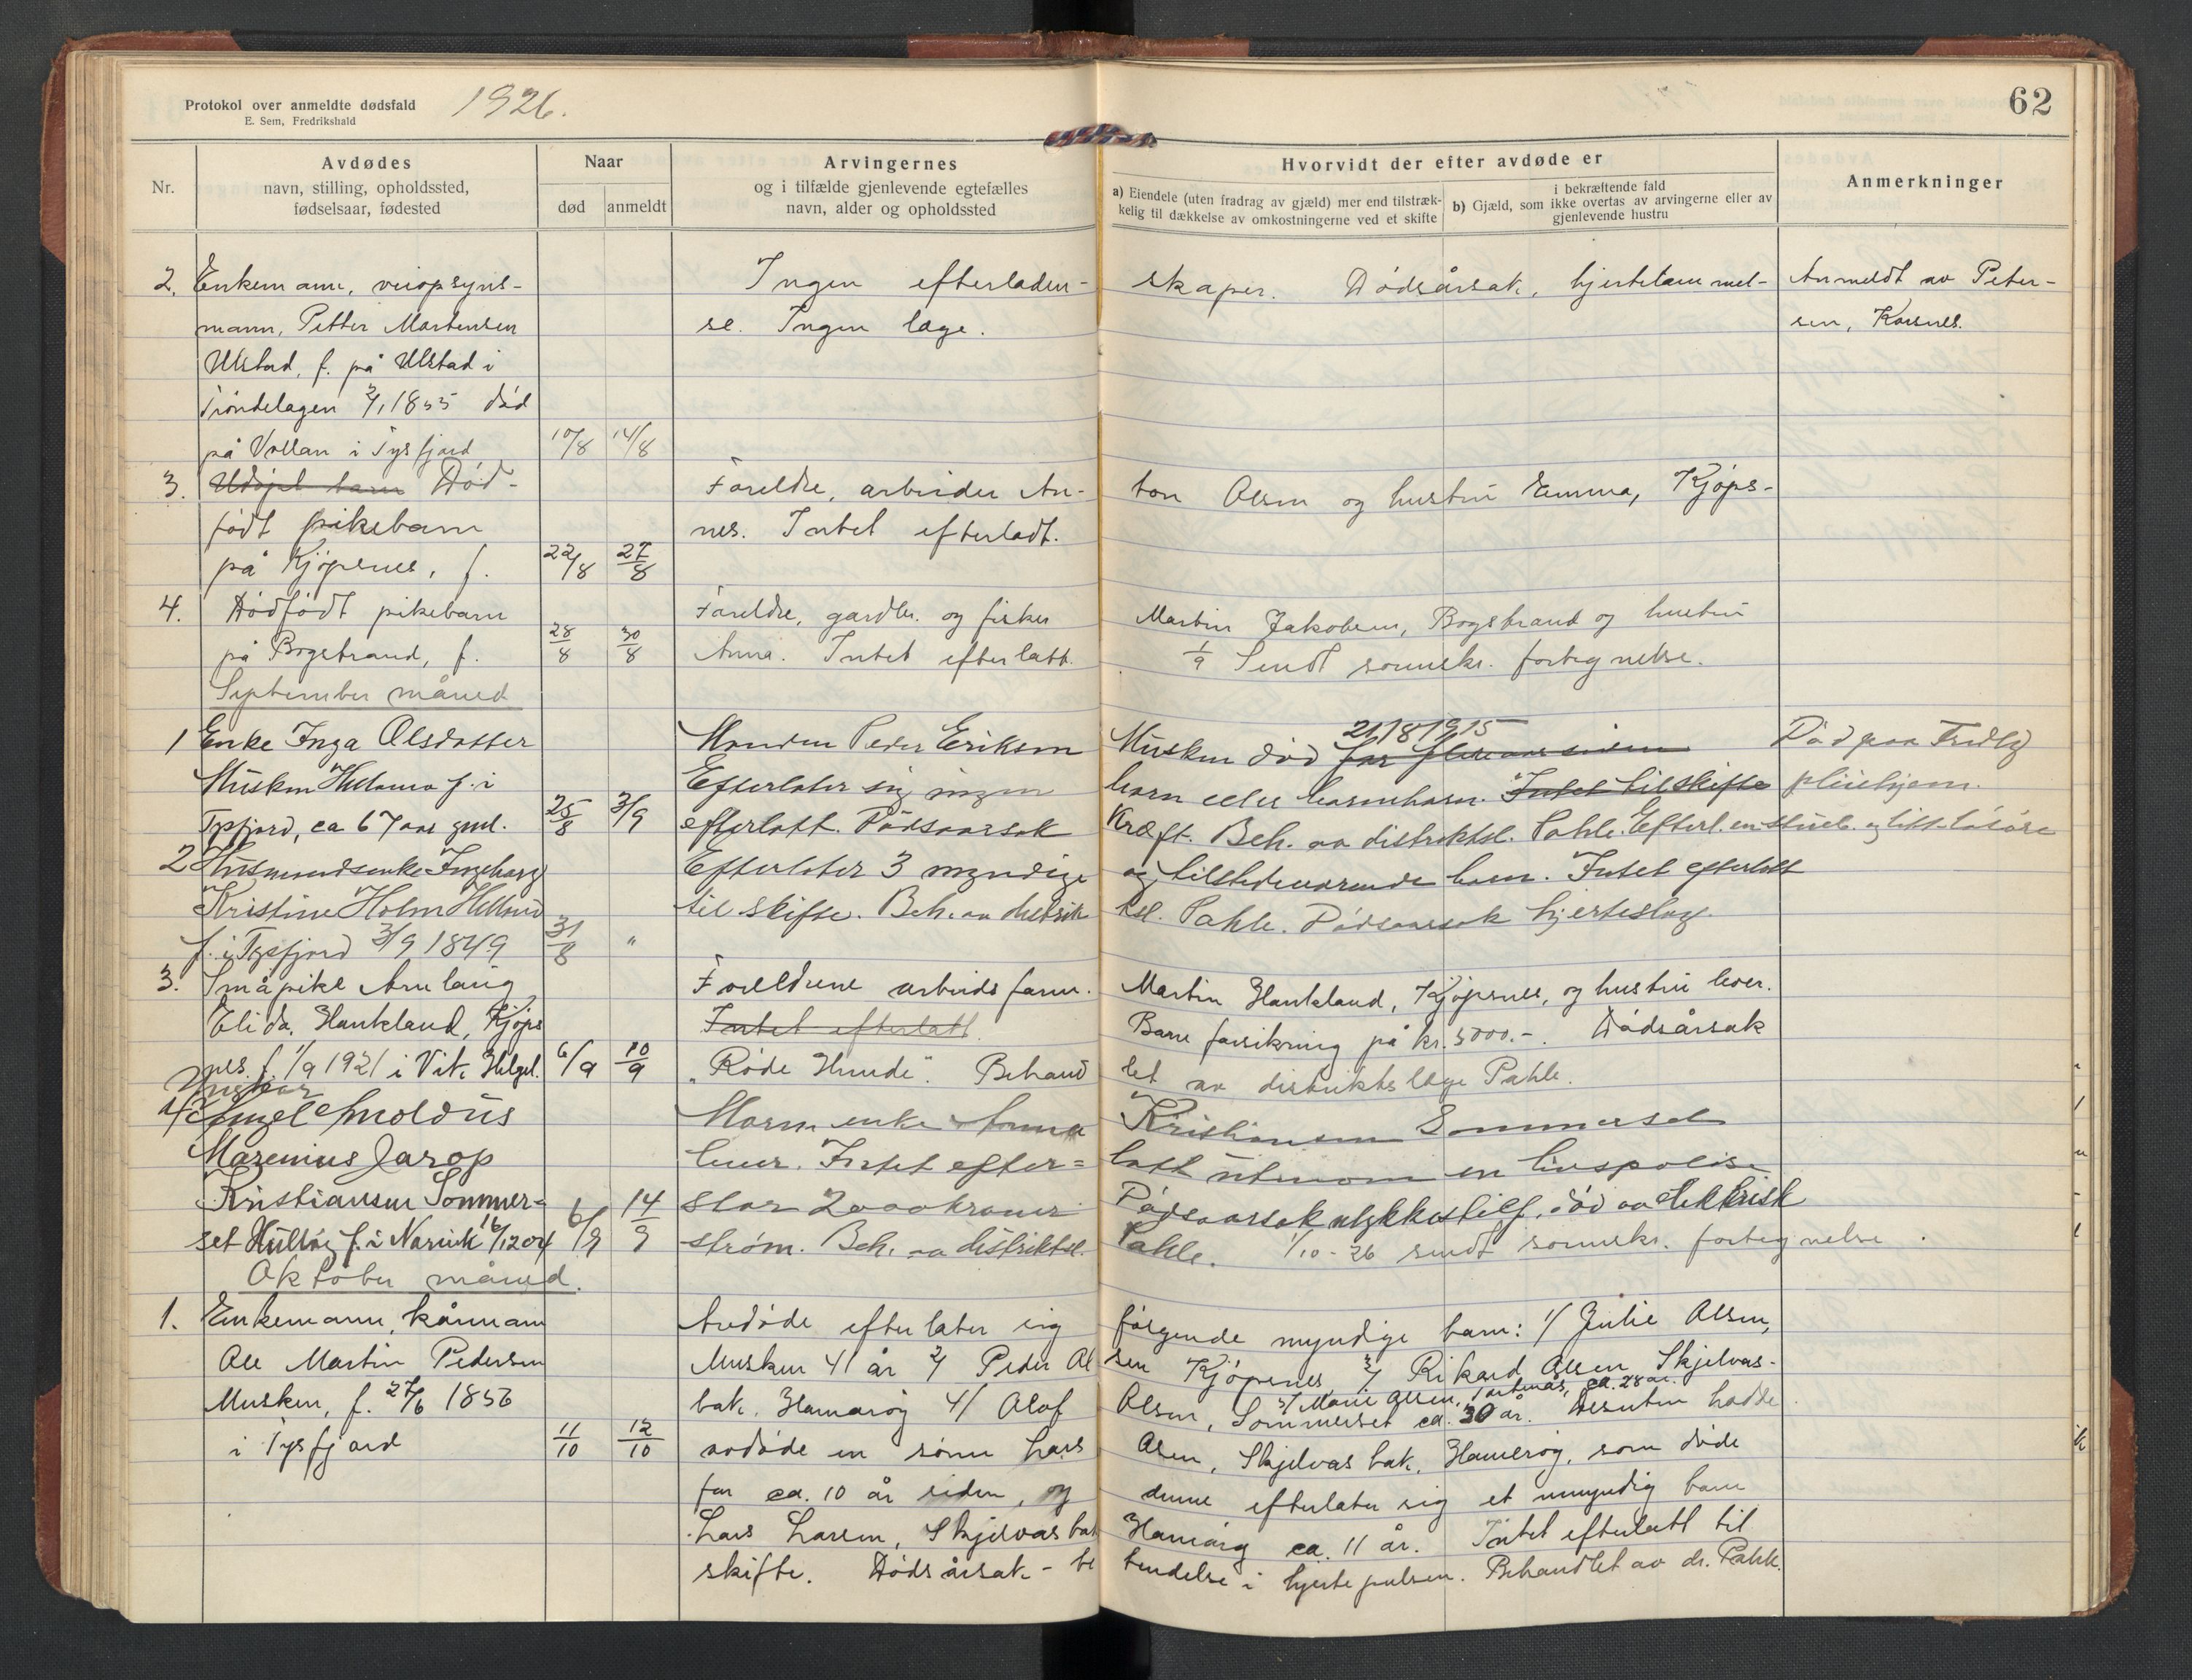 Protokol over anmeldte dødsfald
E. Sem, Fredrikshald
1926.
62
Nr.
Avdødes
navn, stilling, opholdssted,
fødselsaar, fødested
Naar
død anmeldt
Arvingernes
og i tilfælde gjenlevende egtefælles
navn, alder og opholdssted
Hvorvidt der efter avdøde er
a) Eiendele (uten fradrag av gjæld) mer end tilstræk-
kelig til dækkelse av omkostningerne ved et skifte
i bekræftende fald
b) Gjæld, som ikke overtas av arvingerne eller av
gjenlevende hustru
Anmerkninger
2. Enkemann, veiopsyns- Ingen efterladen- skaper. Dødsårsak, hjertelammel- Anmeldt av Peter-
mann, Petter Martensen se. Ingen læge. sen, Korsnes.
Ulstad, f. på Ulstad i
Trøndelagen 2/1 1855 død
på Vollan i Tysfjord 10/8 14/8
3. Udøpt barn Død- Foreldre, arbeider An- ton Olsen og hustru Emma, Kjøps-
født pikebarn nes. Intet efterladt.
på Kjøpsnes, f. 22/8 27/8
4. Dødfødt pikebarn Foreldre, gardbr. og fisker Martin Jakobsen, Bogstrand og hustru
på Bogstrand, f. 28/8 30/8 Anna. Intet efterlatt. 1/9 Sendt sorenskr. fortegnelse.
September måned
1 Enke Inga Olsdatter Manden Peder Eriksen Musken død for flere aar siden 21/8 1915 Død paa Fredly
Musken Hellemo f. i Efterlater sig ingen barn eller barnebarn. Intet til skifte pleiehjem.
Tysfjord, ca 67 aar gml. 25/8 3/9 efterlatt. Dødsaarsak Kræft. Beh. av distriktsl. Pahle. Efterl. en stueb. og litt løsøre
2 Husmandsenke Ingeborg Efterlater 3 myndige og tilstedeværende barn. Intet efterlatt
Kristine Holm Helland til skifte. Beh. av distrik tsl. Pahle. Dødsaarsak hjerteslag.
f. i Tysfjord 3/9 1849 31/8 "
3. Småpike Arnlaug Foreldrene arbeidsform. Martin Haukland, Kjøpsnes, og hustru lever.
Elida Haukland, Kjøps Intet efterlatt. Barneforsikring på kr. 5000.-. Dødsårsak
nes. f. 1/9 1921 i Vik. Helgel. 6/9 10/9 "Røde Hunde". Behand let av distriktslæge Pahle.
Ungkar
4 Angel Arnoldus Moren enke Anna Kristiansen Sommerset
Marenius Jarop lever. Intet efter= latt utenom en livspolise
Kristiansen Sommer= stor 2000 kroner Dødsaarsak ulykkestilf. død av elektrisk
set Hulløy f. i Narvik 16/12 04 6/9 14/9 strøm. Beh. av distriktsl. Pahle. 1/10-26 sendt sorenskr. fortegnelse.
Oktober måned.
1. Enkemann, kårmann Avdøde efterlater sig følgende myndige barn: 1/ Julie Olsen,
Ole Martin Pedersen Musken 41 år 2/ Peder Ol sen Kjøpsnes 3/ Rikard Olsen Skjelvas-
Musken, f. 27/6 1856 bak. Hamarøy 4/ Olof Olsen, Sommerset ca. 30 år. Desuten hadde
5/ Marie Olsen, ca. 28 år.
i Tysfjord 11/10 12/10 avdøde en sønn Lars Olsen, Skjelvasbak. Hamerøy, som døde
for ca. 10 år siden, og denne efterlater sig et umyndig barn
Lars Larsen, Skjelvasbak Hamarøy ca. 11 år. Intet efterlatt til
skifte. Dødsårsak - be tendelse i hjertepulsen. Behandlet av dr. Pahle.